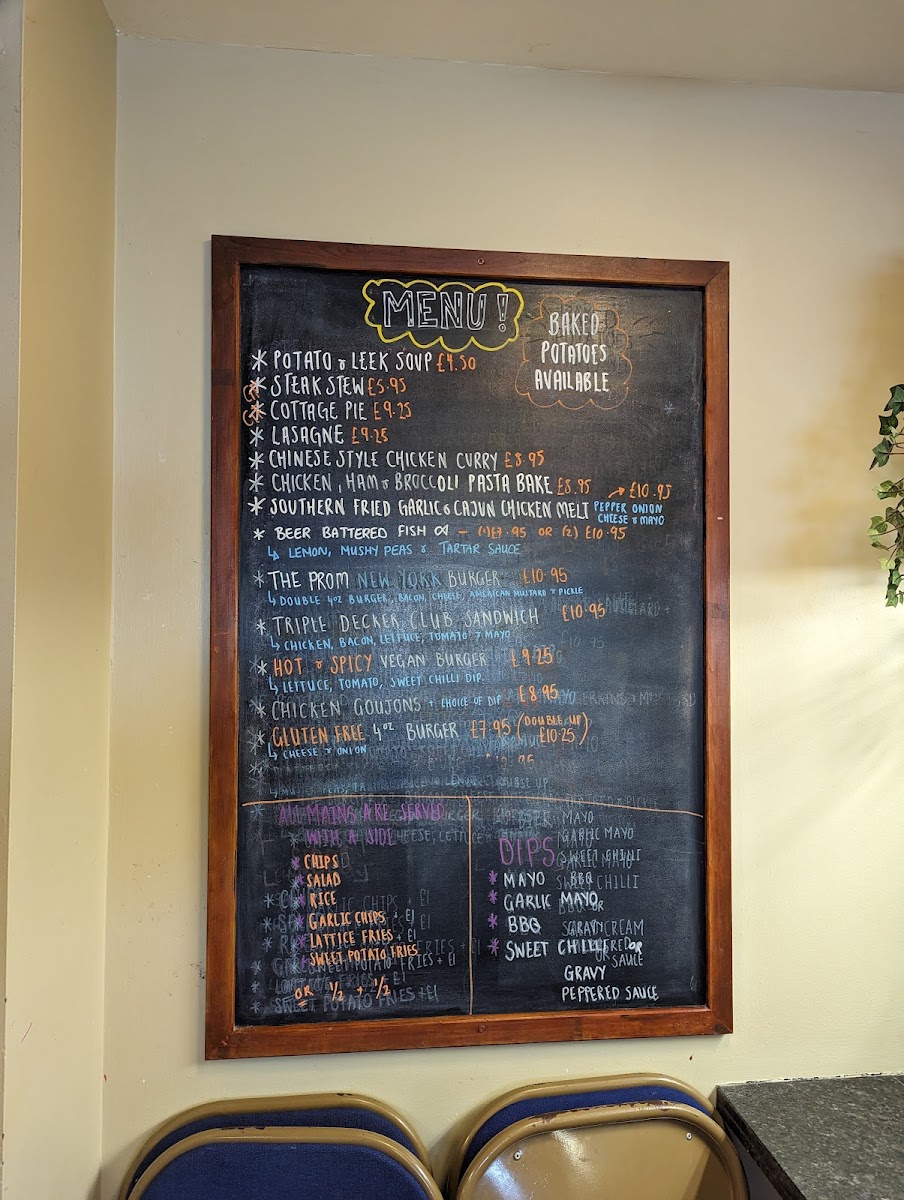 MENU!
BAKED
POTATOES
AVAILABLE
* POTATO & LEEK SOUP £4.50
* STEAK STEW £5.95
* COTTAGE PIE £9.25
* LASAGNE £9.25
* CHINESE STYLE CHICKEN CURRY £8.95
* CHICKEN, HAM & BROCCOLI PASTA BAKE £8.95
→ £10.95
* SOUTHERN FRIED GARLIC & CAJUN CHICKEN MELT PEPPER ONION
CHEESE & MAYO
* BEER BATTERED FISH - (1) £7.95 OR (2) £10.95
↳ LEMON, MUSHY PEAS & TARTAR SAUCE
* THE PROM NEW YORK BURGER £10.95
↳ DOUBLE 4OZ BURGER, BACON, CHEESE, AMERICAN MUSTARD & PICKLE
* TRIPLE DECKER CLUB SANDWICH £10.95
↳ CHICKEN, BACON, LETTUCE, TOMATO & MAYO
* HOT & SPICY VEGAN BURGER £9.25
↳ LETTUCE, TOMATO, SWEET CHILLI DIP
* CHICKEN GOUJONS + CHOICE OF DIP £8.95
* GLUTEN FREE 4OZ BURGER £7.95 (DOUBLE UP
£10.25)
↳ CHEESE & ONION
ALL MAINS ARE SERVED
WITH A SIDE
* CHIPS
* SALAD
* RICE
* GARLIC CHIPS + £1
* LATTICE FRIES + £1
* SWEET POTATO FRIES
OR 1/2 + 1/2
DIPS
* MAYO
* GARLIC MAYO
* BBQ
* SWEET CHILLI
OR
GRAVY
PEPPERED SAUCE